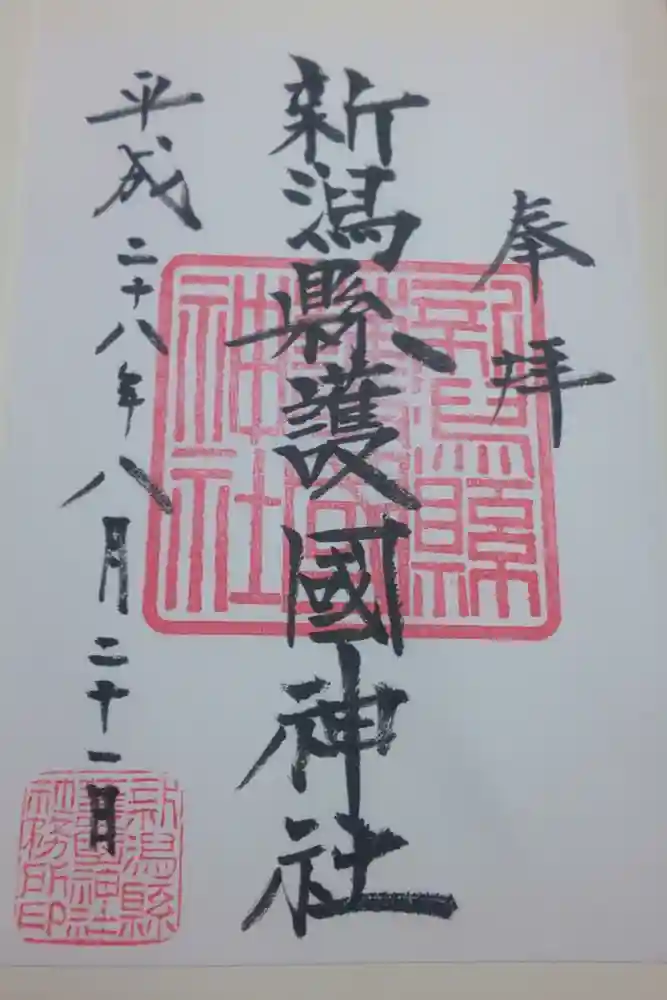 奉拝
新潟縣護國神社
平成二十八年八月二十一日
新潟縣
護國
神社
新潟縣
護國神社
社務所印